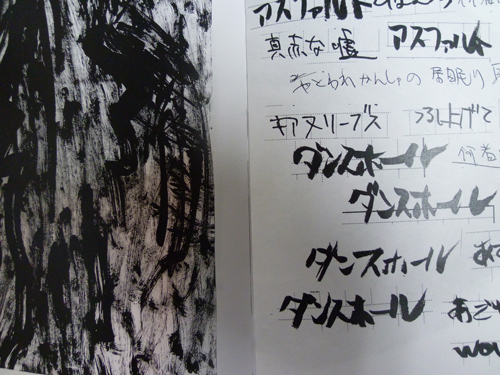 アスファルト
真赤な嘘 アスファルト
やとわれかんしゅの居眠り
キアヌリーブス つるし上げて
ダンスホール 何者
ダンスホール
ダンスホール
ダンスホール